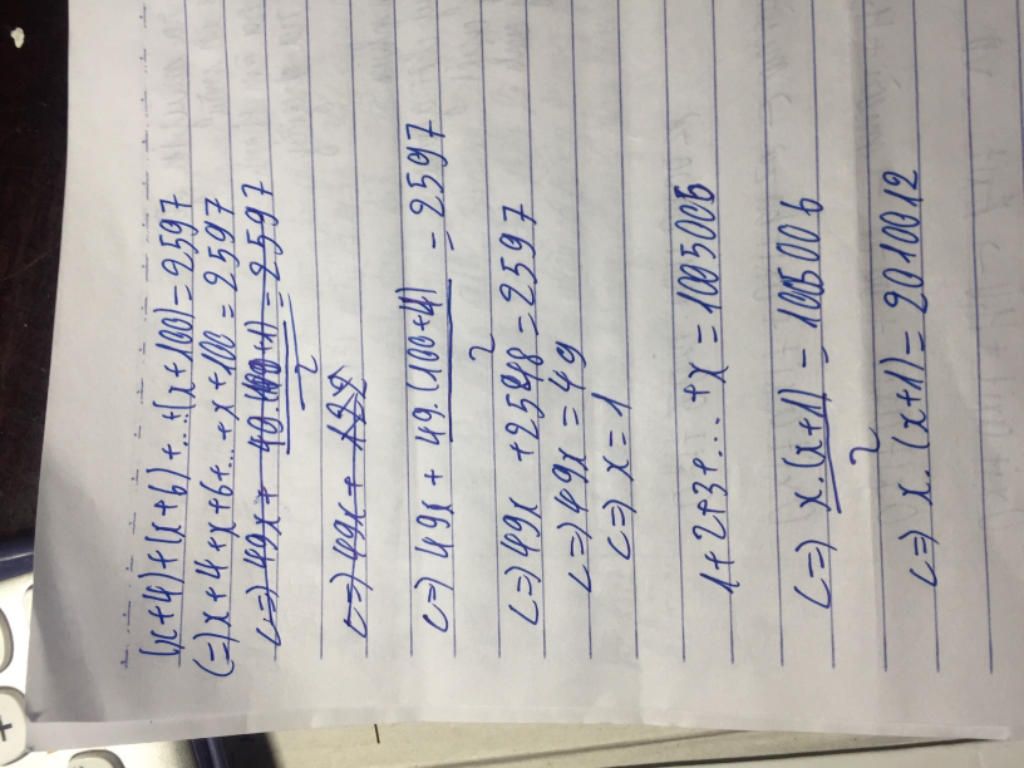 (x+4)+(x+6)+...+(x+100)=2597
(=)x+4+x+6+...+x+100=2597
<=>49x+ = 2597
2
<=>49x+
<=>49x + 49.(100+4) = 2597
2
<=>49x +2548=2597
<=>49x=49
<=>x=1
1+2+3+...+x=1005006
<=>x.(x+1) = 1005006
2
<=>x.(x+1)=2010012